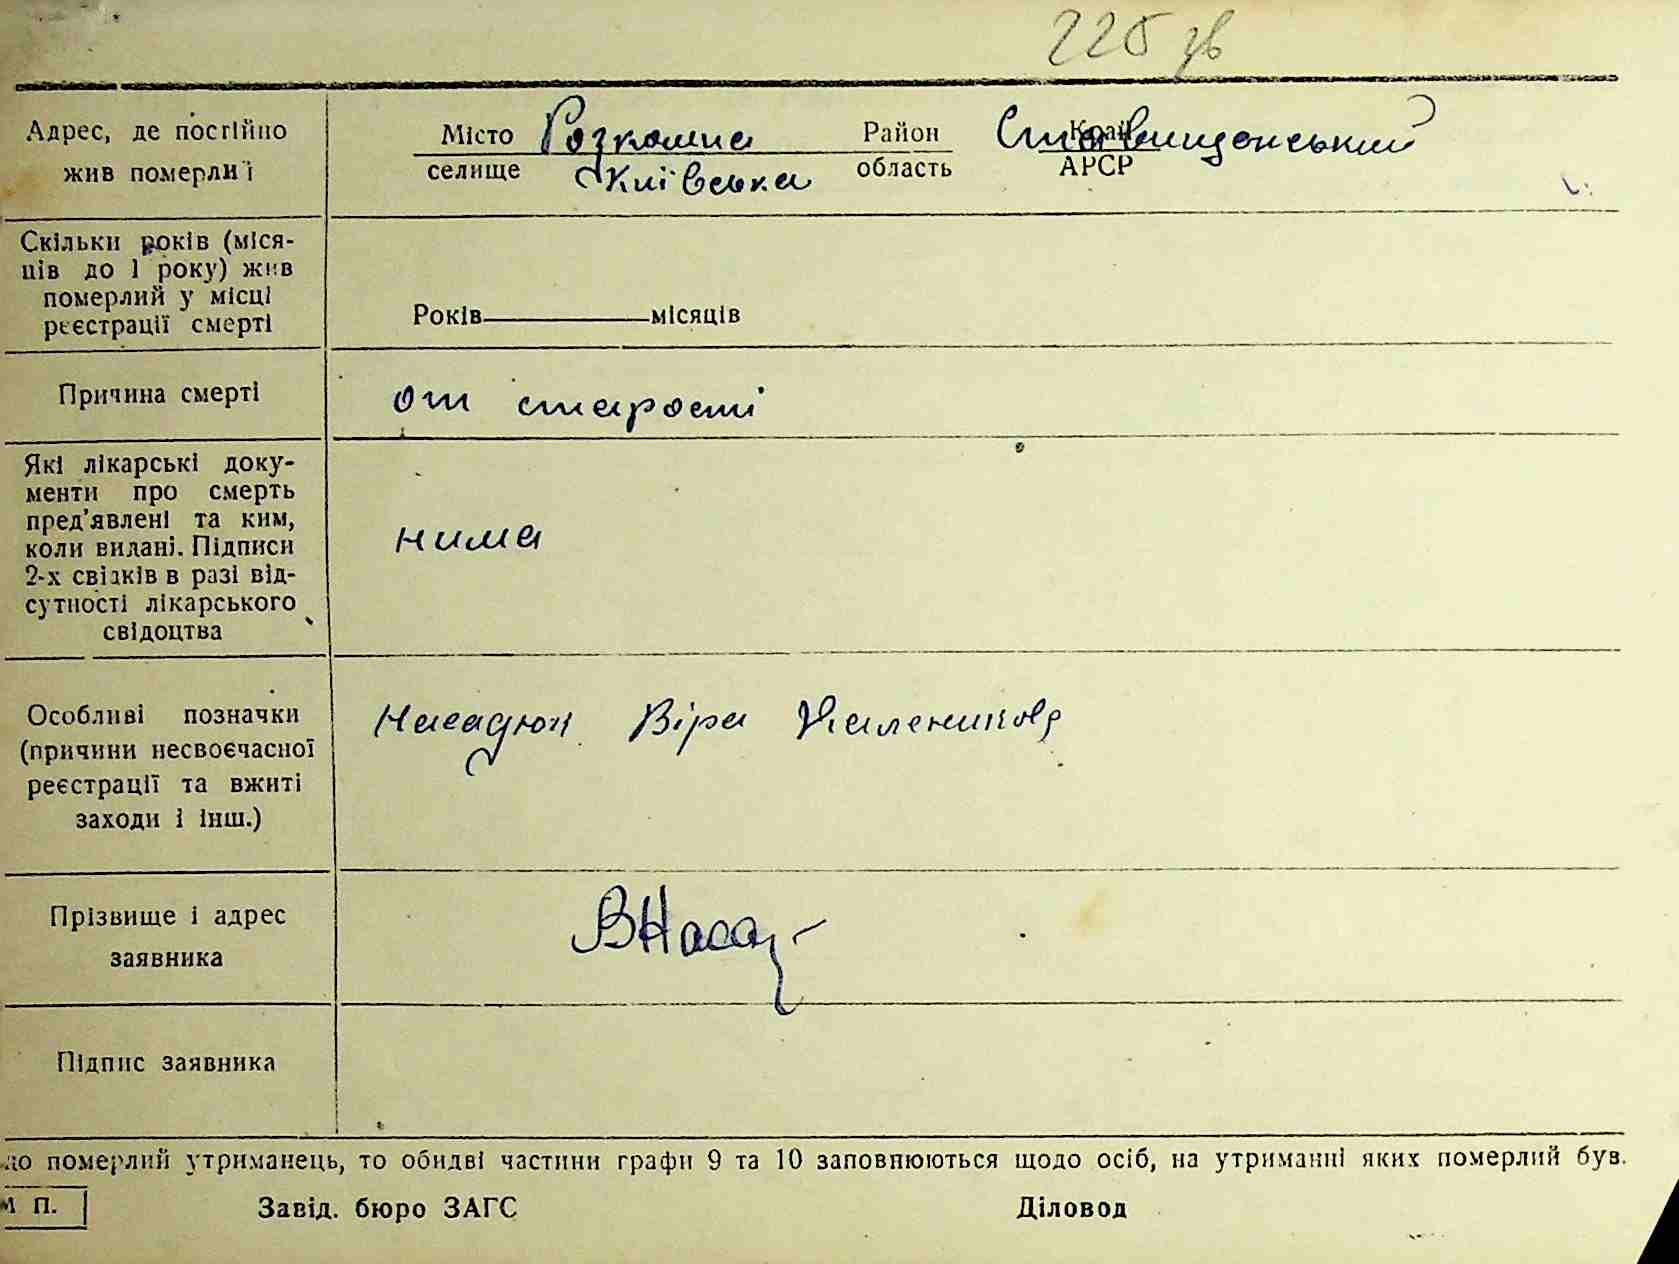 225 зв
Адрес, де постійно
жив померлиї
Місто Розкошна Район Ставищенський Край
селище Київська область АРСР
Скільки років (міся-
ців до 1 року) жив
померлий у місці
реєстрації смерті
Років місяців
Причина смерті
от старості
Які лікарські доку-
менти про смерть
пред'явлені та ким,
коли видані. Підписи
2-х свідків в разі від-
сутності лікарського
свідоцтва
нима
Особливі позначки
(причини несвоєчасної
реєстрації та вжиті
заходи і інш.)
Насадюк Віра Каленикова
Прізвище і адрес
заявника
ВНасад
Підпис заявника
до померлий утриманець, то обидві частини графи 9 та 10 заповнюються щодо осіб, на утриманні яких померлий був.
М П. Завід. бюро ЗАГС Діловод